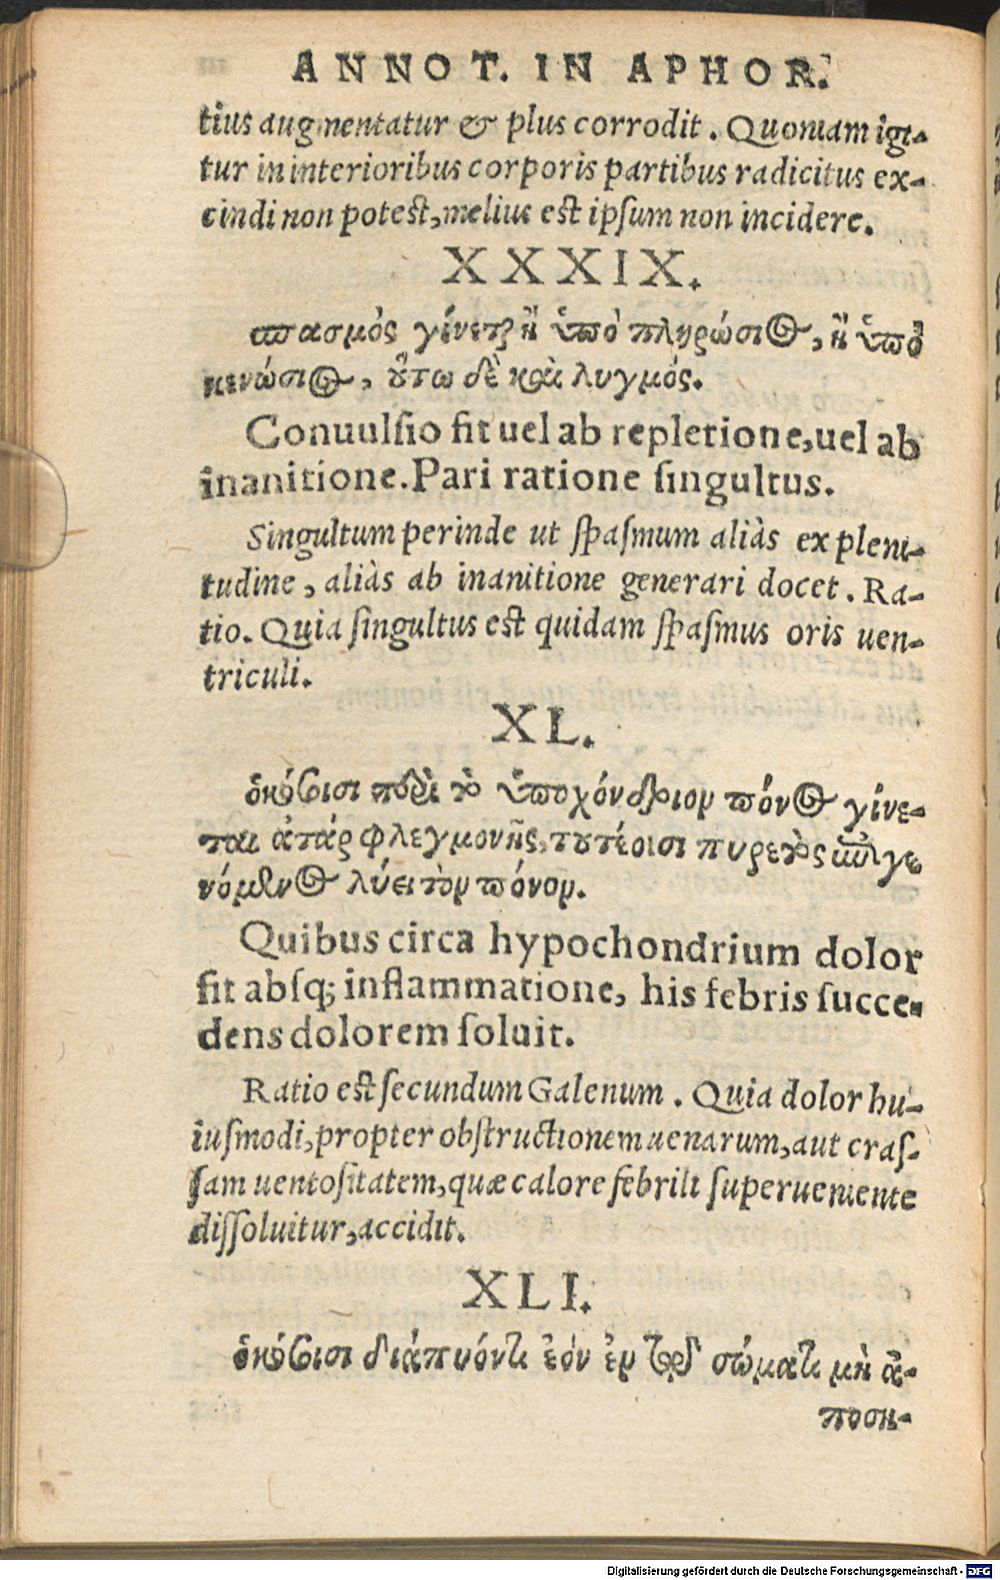 ANNOT. IN APHOR.
tius augmentatur & plus corrodit. Quoniam igi-
tur in interioribus corporis partibus radicitus ex-
cindi non potest, melius est ipſum non incidere.
XXXIX.
σπασμὸς γίνεται ἢ ὑπὸ πληρώσιος, ἢ ὑπὸ
κενώσιος, οὕτω δὲ καὶ λυγμός.
Conuulſio fit uel ab repletione, uel ab
inanitione. Pari ratione ſingultus.
Singultum perinde ut ſpaſmum aliàs ex pleni-
tudine, aliàs ab inanitione generari docet. Ra-
tio. Quia ſingultus est quidam ſpaſmus oris uen-
triculi.
XL.
ὁκόσοισι περὶ τὸ ὑποχόνδριον πόνος γίνε-
ται ἀτὰρ φλεγμονῆς, τουτέοισι πυρετὸς ἐπιγε
νόμενος λύει τὸν πόνον.
Quibus circa hypochondrium dolor
fit abſq; inflammatione, his febris ſucce-
dens dolorem ſoluit.
Ratio est ſecundum Galenum. Quia dolor hu-
iuſmodi, propter obſtructionem uenarum, aut craſ-
ſam uentoſitatem, quæ calore febrili ſuperueniente
diſſoluitur, accidit.
XLI.
ὁκόσοισι διάπυόντι ἐὸν ἐν τῷ σώματι μὴ ἀ-
ποση-
Digitalisierung gefördert durch die Deutsche Forschungsgemeinschaft - DFG